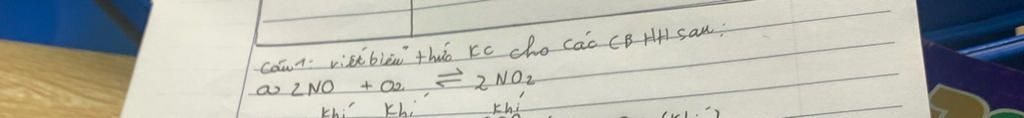 câu 1: viết biểu thức KC cho các CB HH sau:
a> 2NO + O2 ⇌ 2NO2
khí khí khí
(khí)